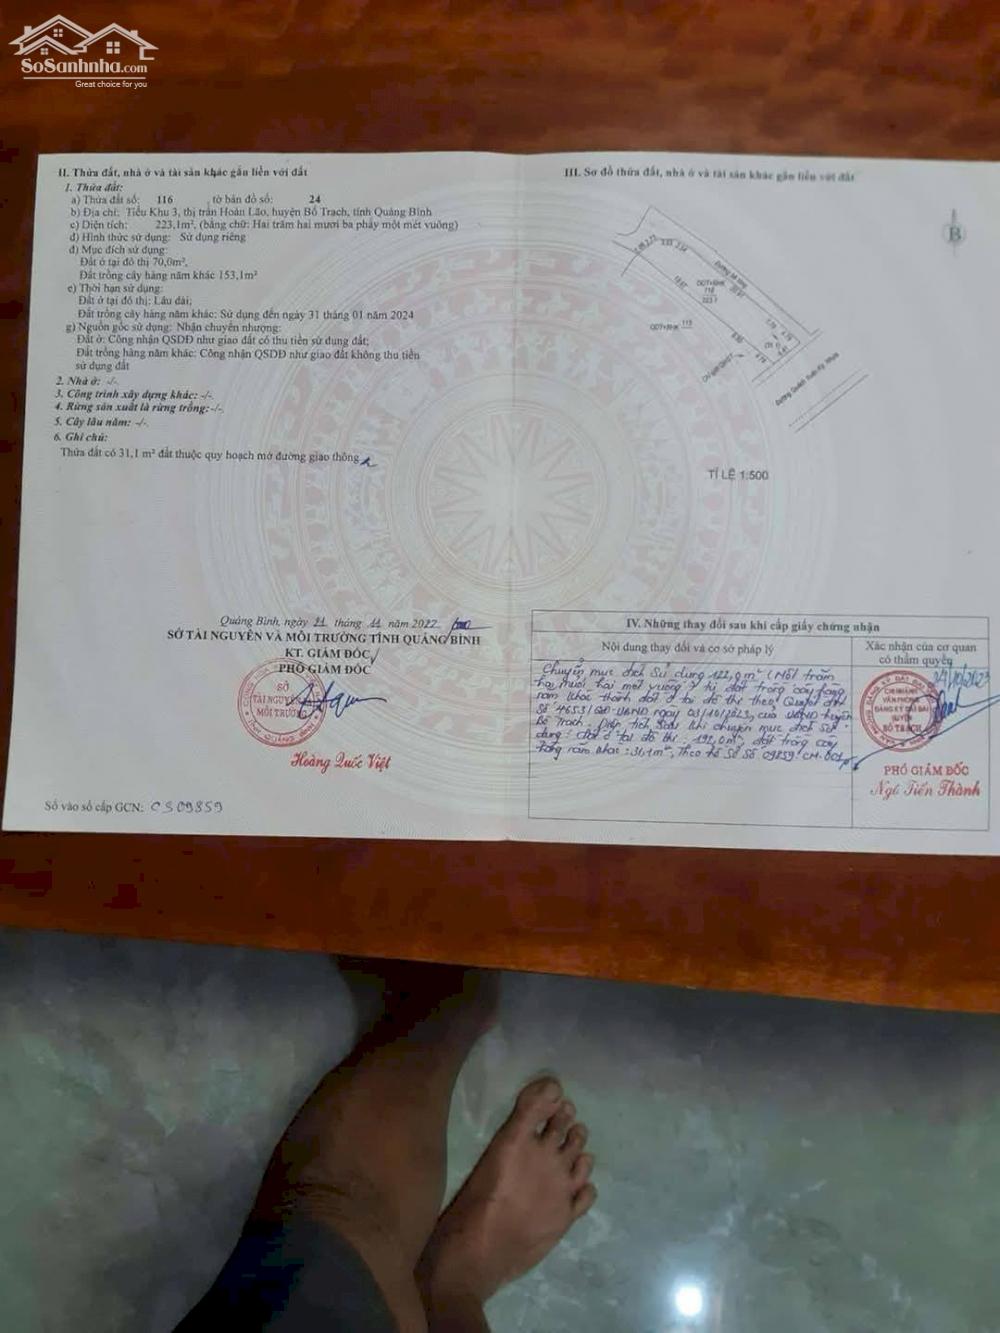 SoSanhnha.com
Great choice for you
II. Thửa đất, nhà ở và tài sản khác gắn liền với đất
1. Thửa đất:
a) Thửa đất số: 116 tờ bản đồ số 24
b) Địa chỉ: Tiểu Khu 3, thị trấn Hoàn Lão, huyện Bố Trạch, tỉnh Quảng Bình
c) Diện tích: 223,1m², (bằng chữ: Hai trăm hai mươi ba phảy một mét vuông)
d) Hình thức sử dụng: Sử dụng riêng
đ) Mục đích sử dụng:
Đất ở tại đô thị 70,0m²,
Đất trồng cây hàng năm khác 153,1m²
e) Thời hạn sử dụng:
Đất ở tại đô thị: Lâu dài;
Đất trồng cây hàng năm khác: Sử dụng đến ngày 31 tháng 01 năm 2024
g) Nguồn gốc sử dụng: Nhận chuyển nhượng:
Đất ở: Công nhận QSDĐ như giao đất có thu tiền sử dụng đất;
Đất trồng hàng năm khác: Công nhận QSDĐ như giao đất không thu tiền
sử dụng đất
2. Nhà ở: -/-.
3. Công trình xây dựng khác: -/-.
4. Rừng sản xuất là rừng trồng:-/-.
5. Cây lâu năm: -/-.
6. Ghi chú:
Thửa đất có 31,1 m² đất thuộc quy hoạch mở đường giao thông
Quảng Bình, ngày 21 tháng 11 năm 2022
SỞ TÀI NGUYÊN VÀ MÔI TRƯỜNG TỈNH QUẢNG BÌNH
KT. GIÁM ĐỐC
PHÓ GIÁM ĐỐC
SỞ
TÀI NGUYÊN VÀ
MÔI TRƯỜNG
Hoàng Quốc Việt
Số vào sổ cấp GCN: CS09859
III. Sơ đồ thửa đất, nhà ở và tài sản khác gắn liền với đất
B
Đường bê tông
ODT+BHK 116
223.1
ODT+BHK 115
Chỉ giới QHGT
TỈ LỆ 1:500
IV. Những thay đổi sau khi cấp giấy chứng nhận
Nội dung thay đổi và cơ sở pháp lý
Xác nhận của cơ quan
có thẩm quyền
Chuyển mục đích sử dụng 122,0 m² (Một trăm
hai mươi hai mét vuông) từ đất trồng cây hàng
năm khác thành đất ở tại đô thị theo Quyết định
số 4653/QĐ-UBND ngày 03/10/2023, của UBND huyện
Bố Trạch. Diện tích sau khi chuyển mục đích sử
dụng: đất ở tại đô thị: 192,0m², đất trồng cây
hàng năm khác: 31,1m², Theo hồ sơ số 09859.CM.001
24/10/2023
CHI NHÁNH
VĂN PHÒNG
ĐĂNG KÝ ĐẤT ĐAI
HUYỆN
BỐ TRẠCH
PHÓ GIÁM ĐỐC
Ngô Tiến Thành